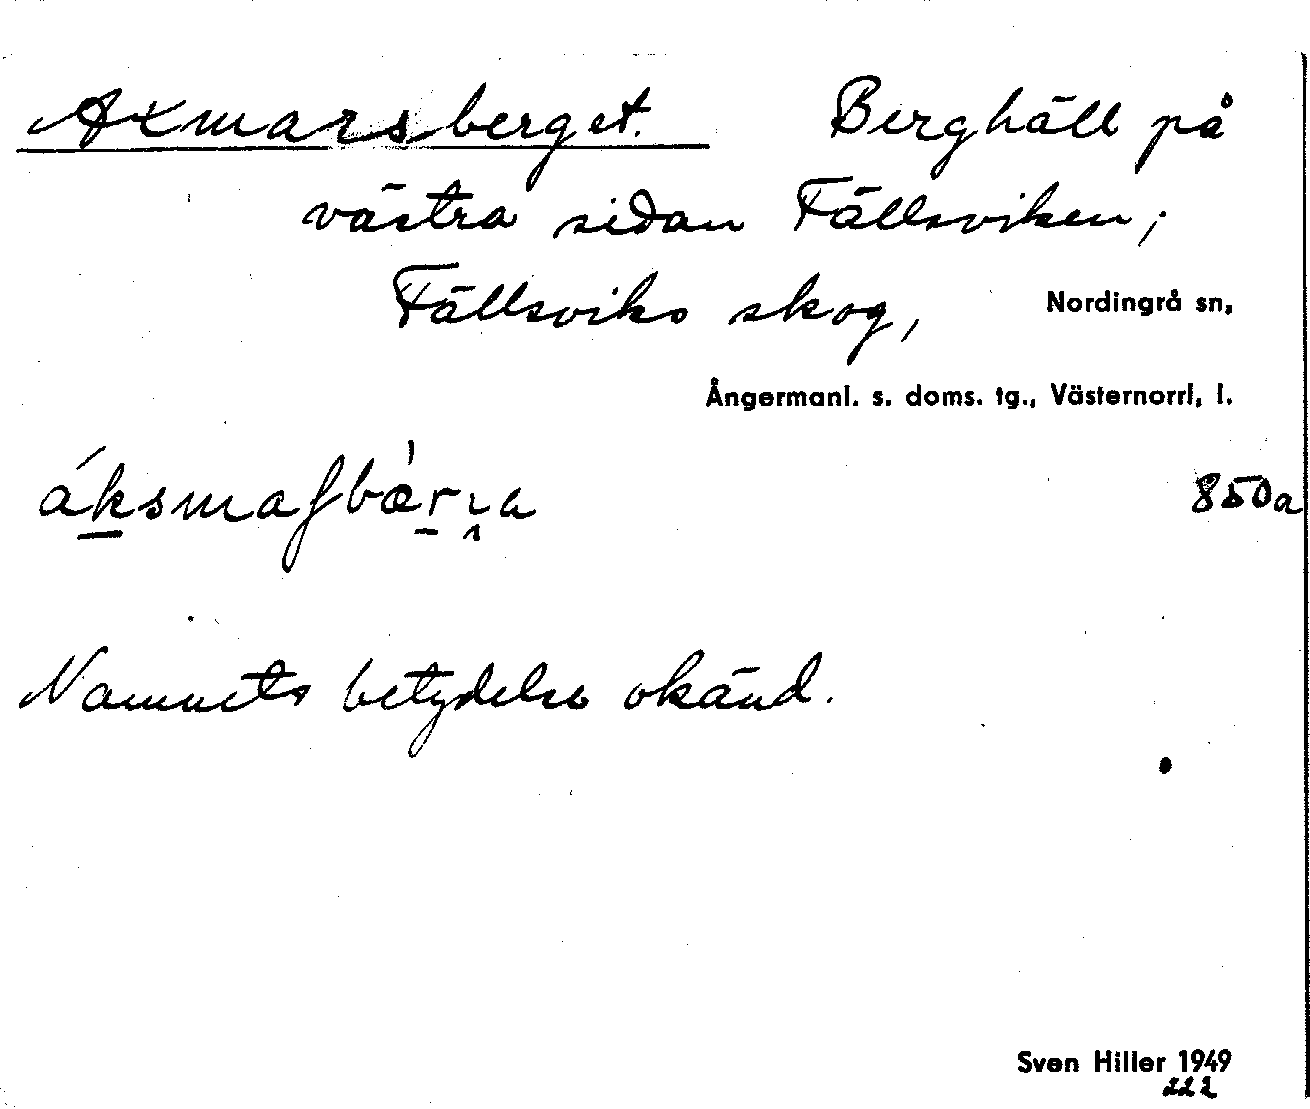 Axmarsberget. Berghäll på
västra sidan Fällsviken;
Fällsviks skog, Nordingrå sn,
Ångermanl. s. doms. tg., Västernorrl, l.
850a
Namnets betydelse okänd.
Sven Hiller 1949
222